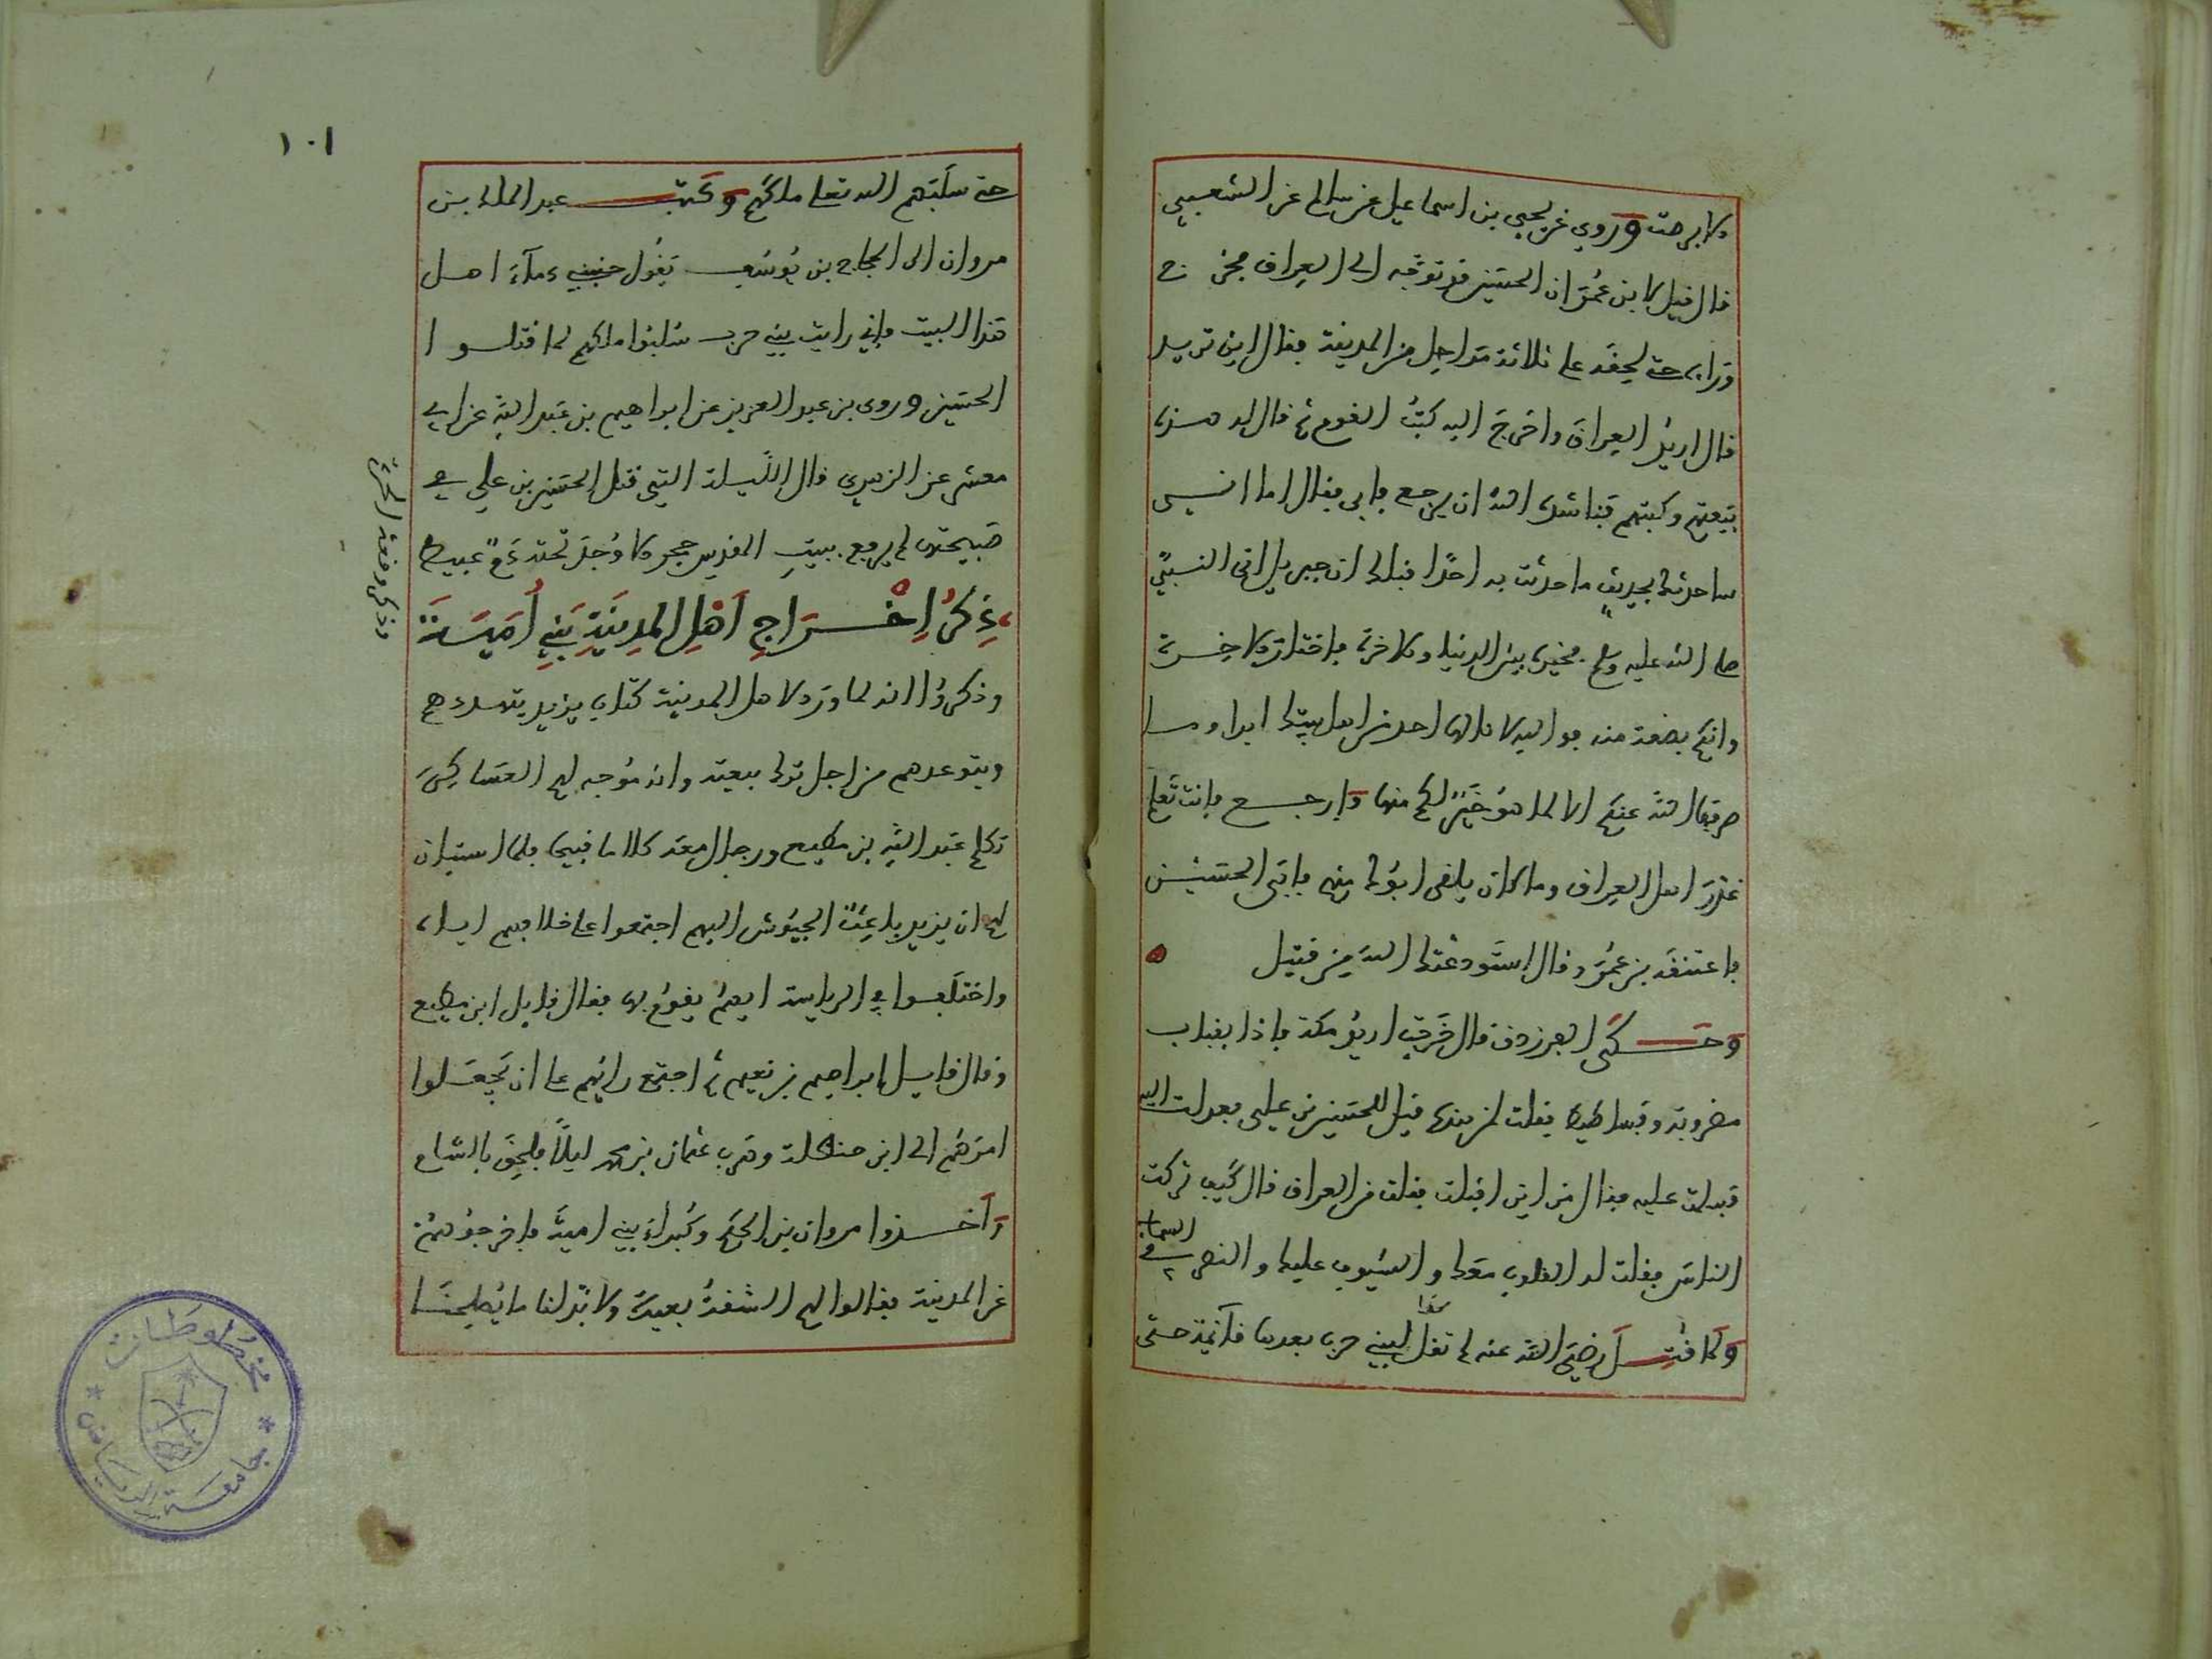 ولا برحت وروي عن يحيى بن اسماعيل عن سالم عن الشعبي
قال قيل لابن عمر ان الحسين قد توجه الى العراق فخرج
وراءه حتى لحقه على ثلاثة مراحل من المدينة فقال اين تريد
قال اريد العراق واخرج اليه كتب القوم ثم قال له هذه
بيعتهم وكتبهم فناشده الله ان يرجع فابى فقال اما اني
ساحدثك بحديث ما حدثت به احدا قبلك ان جبريل اتى النبي
صلى الله عليه وسلم فخيره بين الدنيا والاخرة فاختار الاخرة
وانكم بضعة منه فوالله لا نالها احد من اهل بيتك ابدا وما
صرفها الله عنكم الا لما هو خير لكم منها فارجع فانت تعلم
غدر اهل العراق وما كان يلقى ابوك منهم فابى الحسين
فاعتنقه بن عمر وقال استودعتك الله من قتيل
وحكى الفرزدق قال خرجت اريد مكة فاذا بقباب
مضروبة وفساطيط فقلت لمن هذه قيل للحسين بن علي فعدلت اليه
فسلمت عليه فقال من اين اقبلت فقلت من العراق قال كيف تركت
الناس فقلت له القلوب معك والسيوف عليك والنصر في السماء
ولما قتل رضي الله عنه لم تقل لبني حرب بعدها قائمة حتى
١٠١
حتى سلبهم الله تعلى ملكهم وكتب عبد الملك بن
مروان الى الحجاج بن يوسف يقول جنبني دماء اهل
هذا البيت فاني رايت بني حرب سلبوا ملكهم لما قتلوا
الحسين وروى بن عبد العزيز عن ابراهيم بن عبد الله عن ابي
معشر عن الزهري قال الليلة التي قتل الحسين بن علي في
صبيحتها لم يرفع ببيت المقدس حجر الا وجد تحته دم عبيط
ذكر اخراج اهل المدينة بني امية
وذكروا انه لما ورد لاهل المدينة كتاب يزيد يتهددهم
ويتوعدهم من اجل ترك بيعته وانه موجه لهم العساكر
تكلم عبد الله بن مطيع ورجال معه كلاما قبيحا فلما استبان
لهم ان يزيد باعث الجيوش اليهم اجتمعوا على خلافهم اياه
واختلفوا في الرياسة ايهم يقوم بها فقال قايل ابن مطيع
وقال قايل ابراهيم بن نعيم ثم اجتمع رايهم على ان يجعلوا
امرهم الى ابن حنظلة وهرب عثمان بن محمد ليلا فلحق بالشام
واخذوا مروان بن الحكم وكبراء بني امية فاخرجوهم
عن المدينة فقالوا لهم الشقة بعيدة ولا بد لنا ما يصلحنا
وذكر وقعة الحرة
مخطوطات
جامعة الرياض